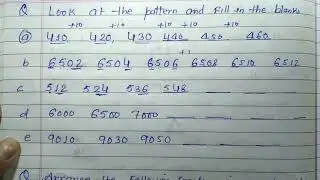 Q Look at the pattern and fill in the blanks
+10 +10 +10 +10
(a) 410, 420, 430 440 450. 460.
+1
b 6502 6504 6506 6508 6510 6512
c 512 524 536 548
d 6000 6500 7000
e 9010 9030 9050
Q Arrange the following